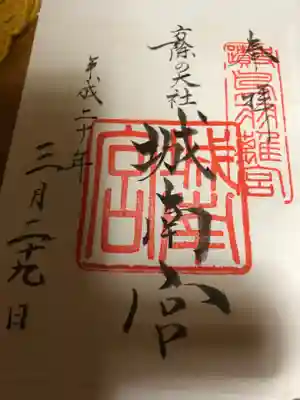 奉拝
離宮
の大社
城南宮
城南宮
平成二十年
三月二十九日